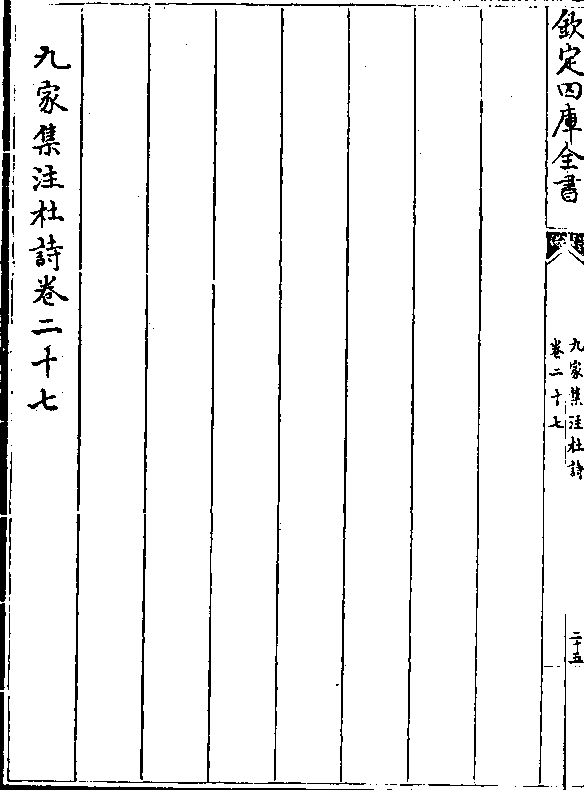 欽定四庫全書
九家集注杜詩
卷二十七
二十五
九家集注杜詩卷二十七